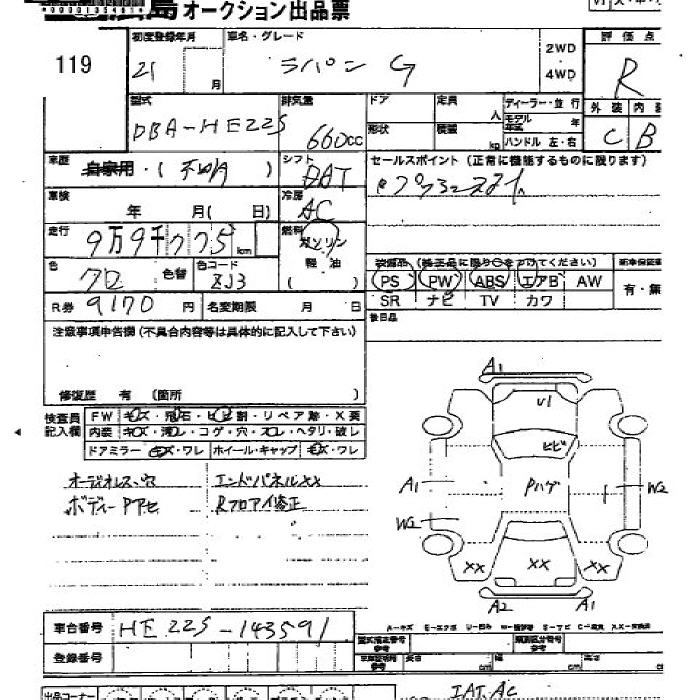 島 オークション出品票
119
初度登録年月 車名・グレード
21 月 ラパン G
2WD
4WD
評価点
R
型式 排気量
DBA-HE22S 660cc
ドア 定員 人
形状 積載 kg
ディーラー・並行
モデル年式 年
ハンドル 左・右
外装 内装
C B
車歴 自家用・( 不明 )
シフト DAT
セールスポイント (正常に機能するものに限ります)
車検 年 月( 日)
冷房 AC
走行 9万9千775 km
燃料 ガソリン
軽油
( )
色 クロ 色替 色コード ZJ3
装備品 (純正品に限り○をつけてください)
PS PW ABS エアB AW
SR ナビ TV カワ
新車保証書
有・無
R券 9170 円 名変期限 月 日
後日品
注意事項申告欄 (不具合内容等は具体的に記入して下さい)
修復歴 有 (箇所 )
検査員記入欄
FW キズ・飛石・ヒビ割・リペア跡・X要
内装 キズ・汚レ・コゲ・穴・スレ・ヘタリ・破レ
ドアミラー キズ・ワレ ホイール・キャップ キズ・ワレ
オーディオレス・穴 エンドパネルXX
ボディーPアセ Rフロア修正
A1
U1
ヒビ
A1 Pハゲ W2
W2
XX XX XX
A2 A1
車台番号 HE22S-143591
登録番号
型式指定番号 参考
類別区分番号 参考
長さ cm 幅 cm 高さ cm
出品コーナー
IAT AC